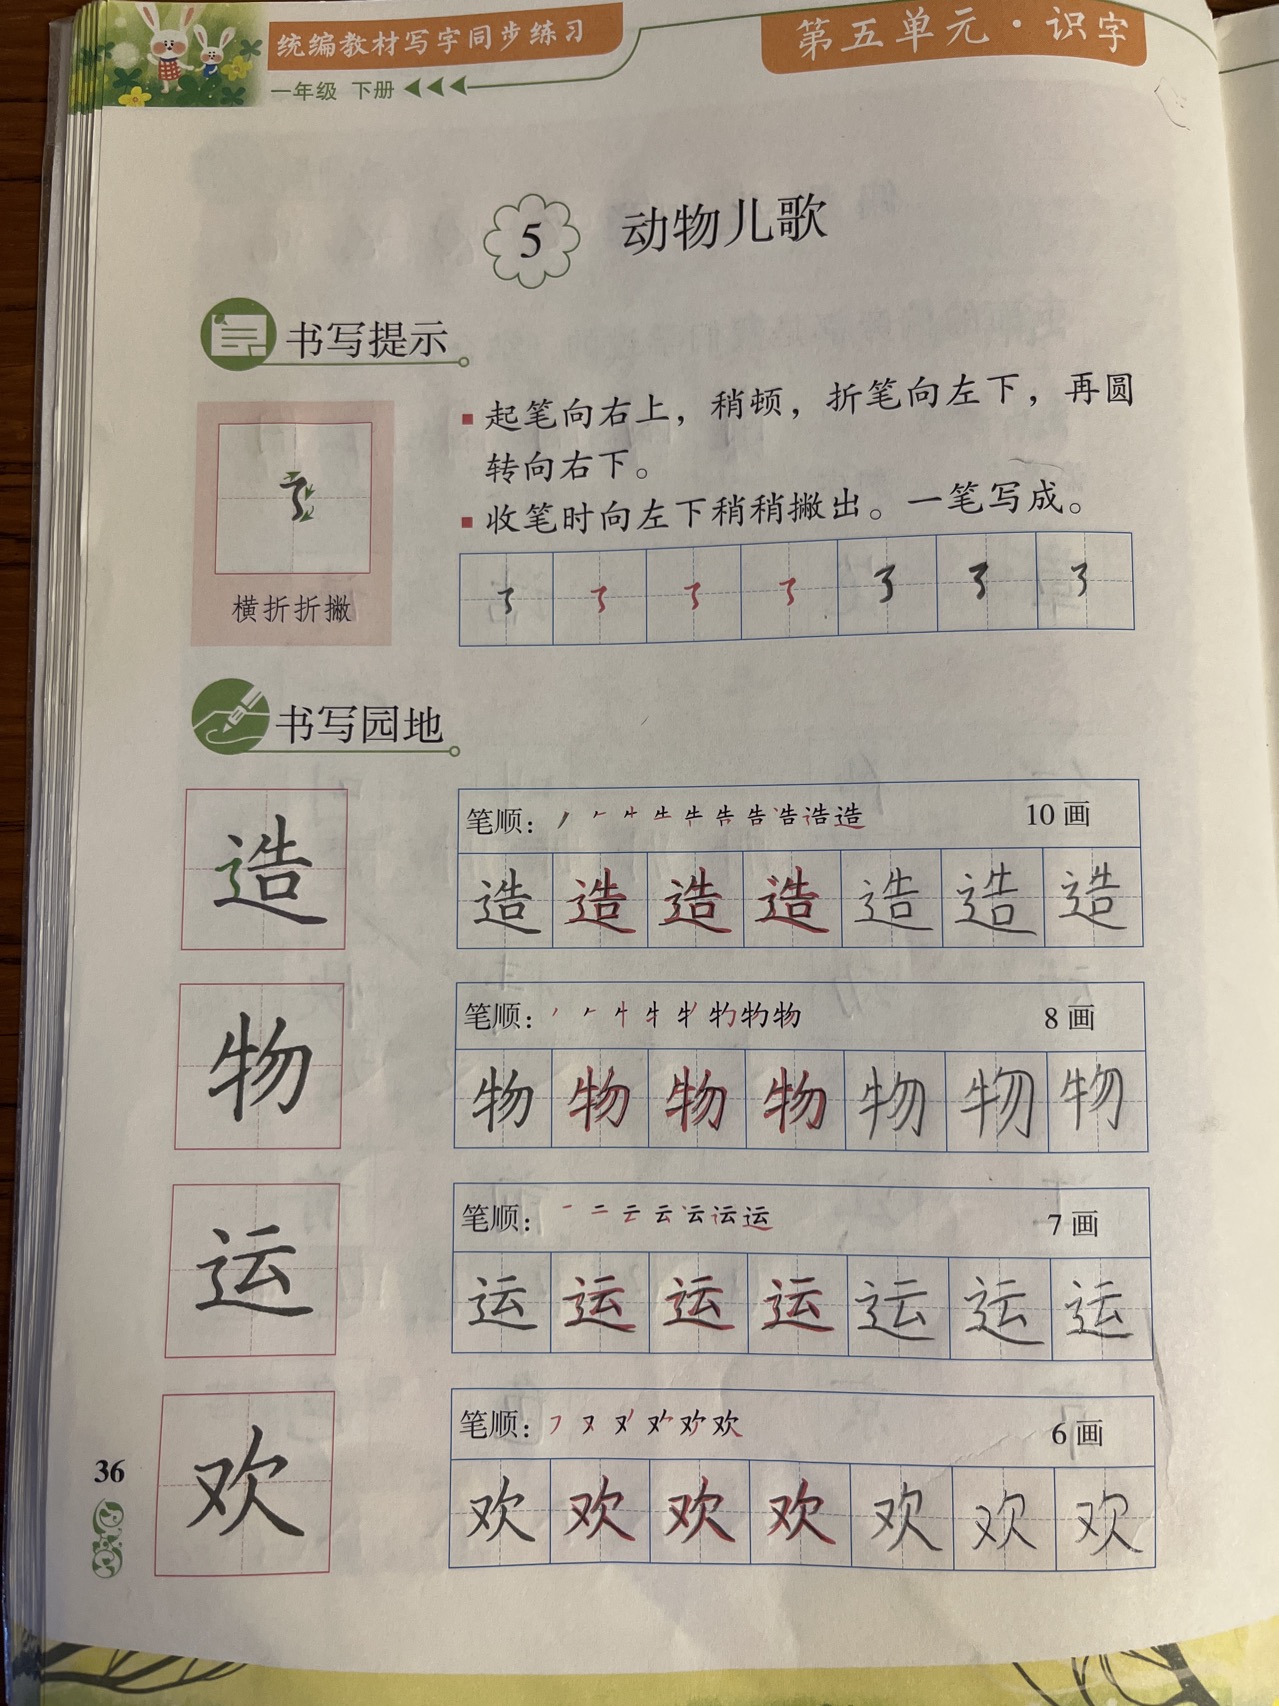 统编教材写字同步练习
第五单元·识字
一年级 下册
5 动物儿歌
书写提示
起笔向右上，稍顿，折笔向左下，再圆
转向右下。
收笔时向左下稍稍撇出。一笔写成。
横折折撇
书写园地
造
笔顺： 10画
造 造 造 造 造 造 造
物
笔顺： 8画
物 物 物 物 物 物 物
运
笔顺： 7画
运 运 运 运 运 运 运
欢
笔顺： 6画
欢 欢 欢 欢 欢 欢 欢
36